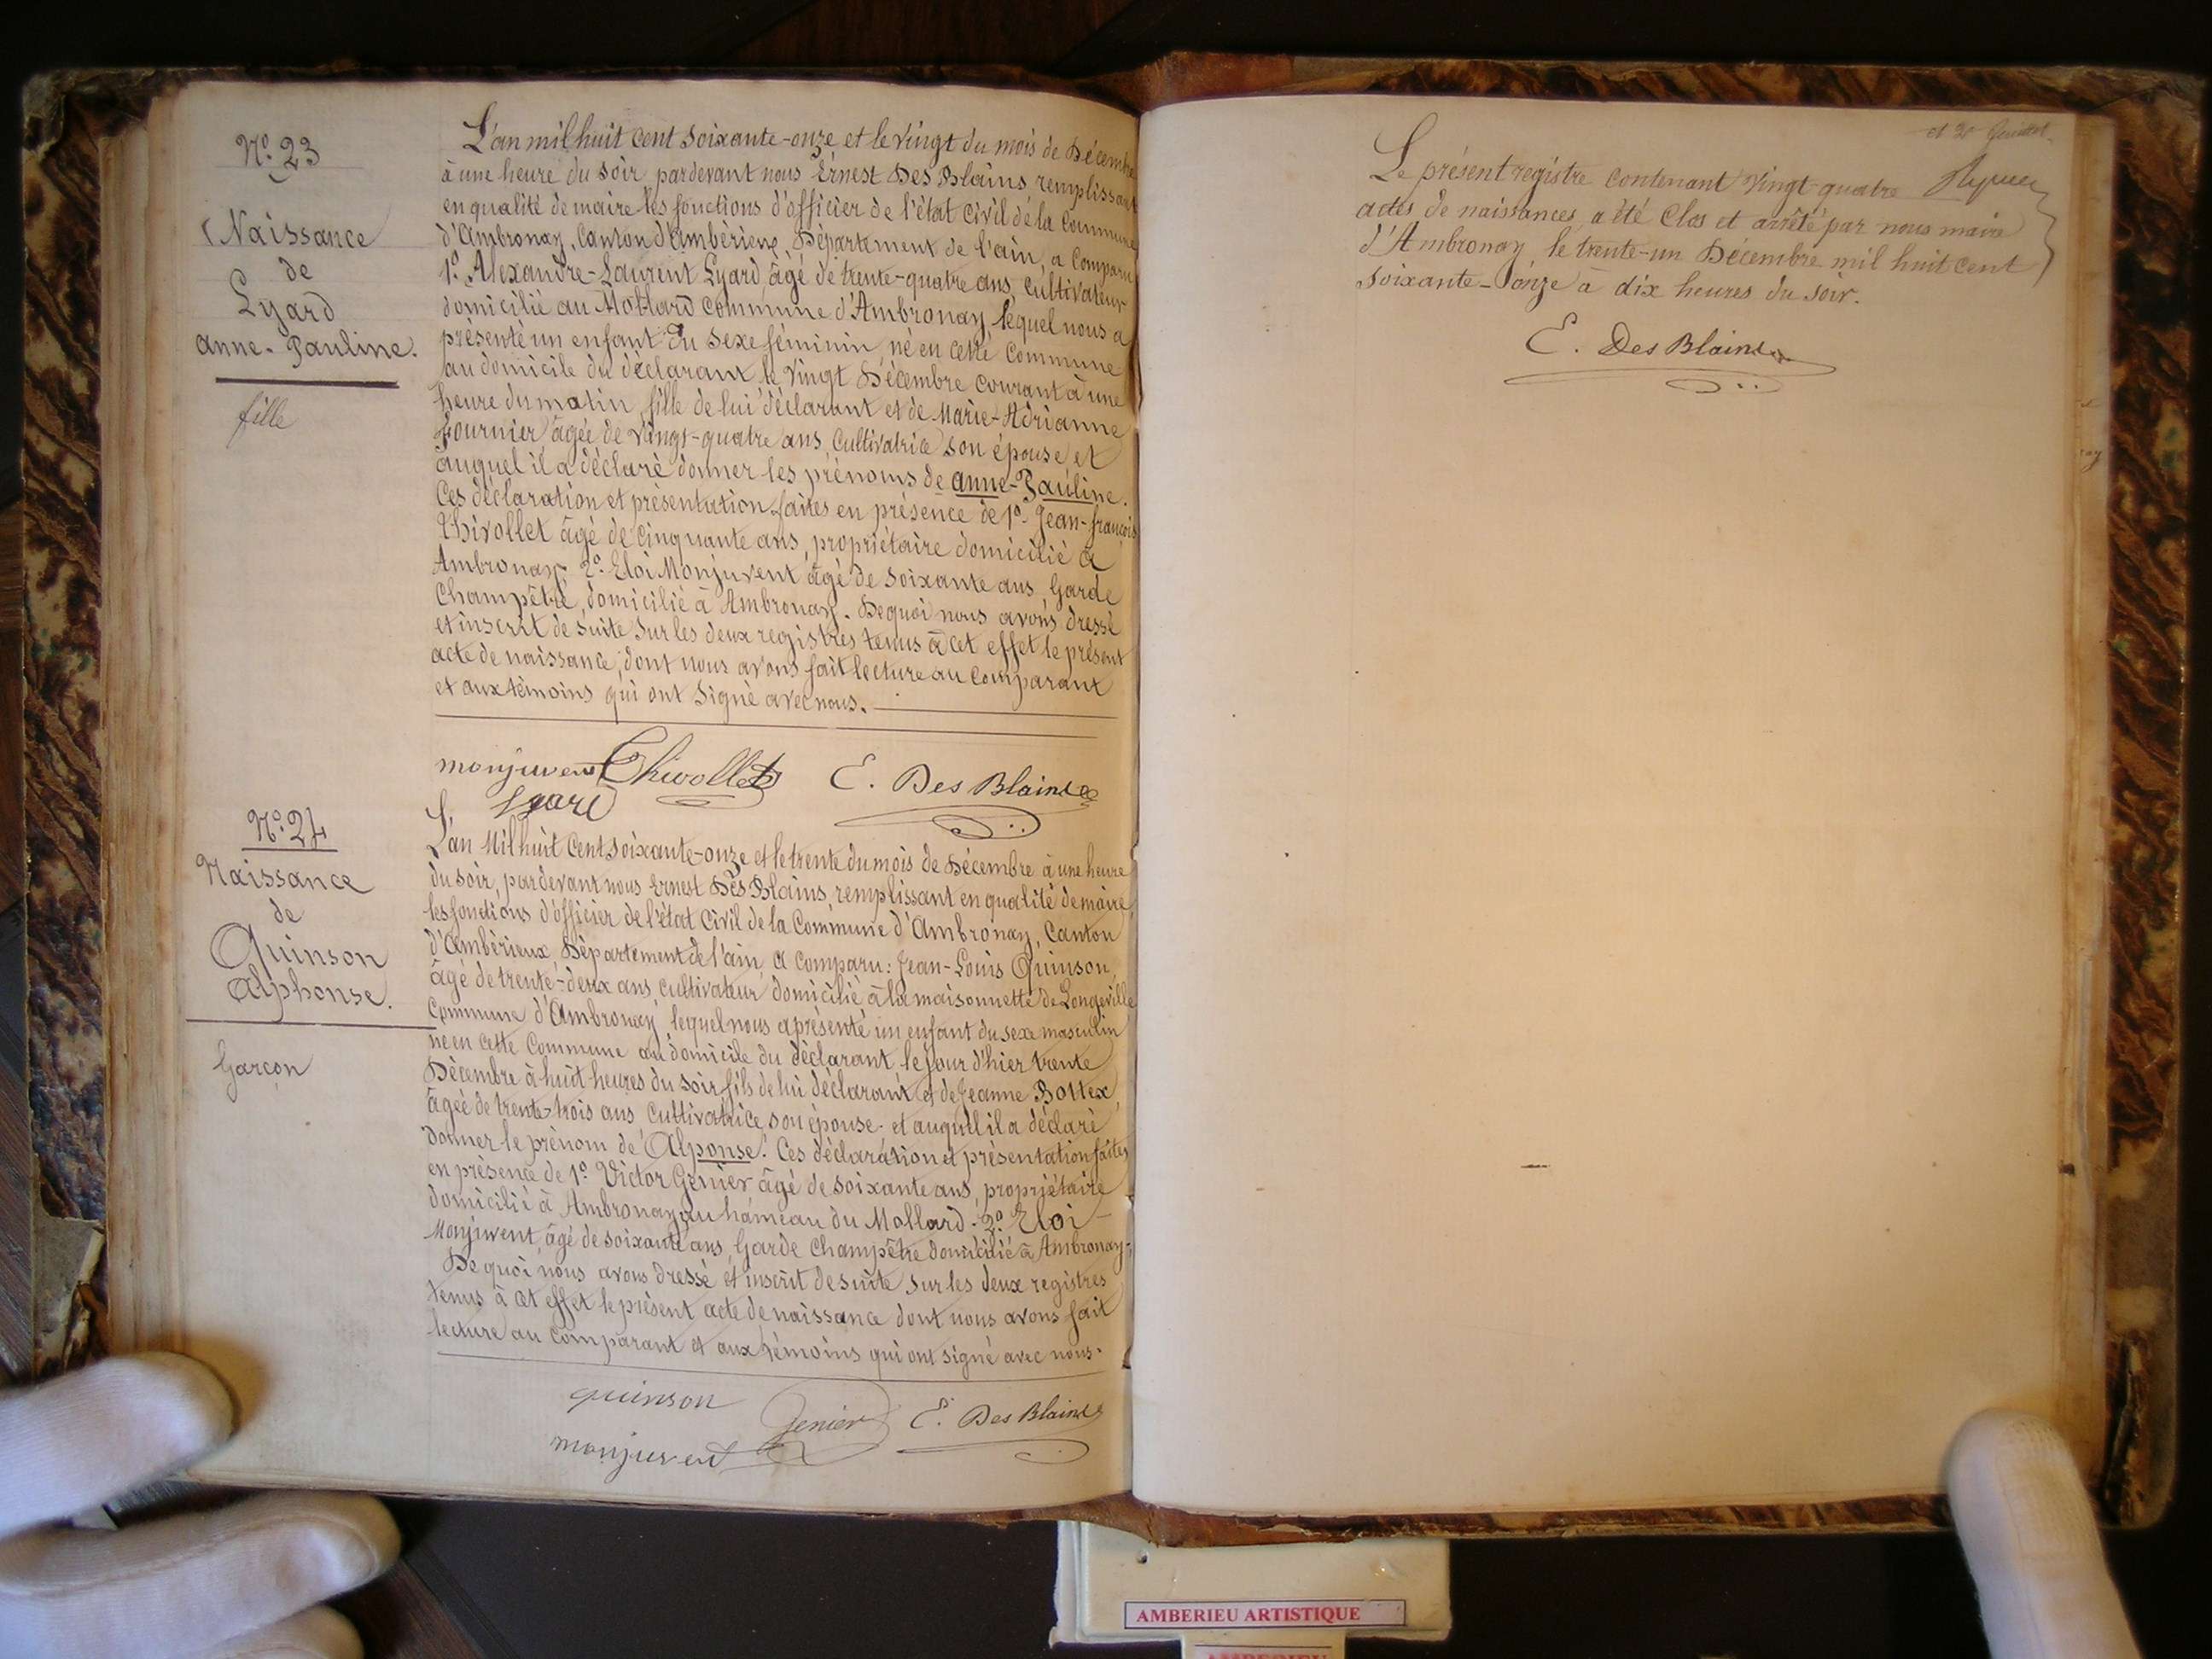 N.º 23
Naissance
de
Lyard
anne-Pauline.
fille
L'an mil huit cent soixante-onze et le vingt du mois de Décembre
à une heure du soir pardevant nous Ernest Des Blains remplissant
en qualité de maire les fonctions d'officier de l'état civil de la Commune
d'Ambronay, Canton d'Ambérieux, Département de l'ain, a Comparu
1º Alexandre-Laurent Lyard, âgé de trente-quatre ans, cultivateur
domicilié au Mollard commune d'Ambronay, lequel nous a
présenté un enfant du sexe féminin, né en cette Commune
au domicile du déclarant le vingt Décembre courant à une
heure du matin, fille de lui déclarant et de Marie-Adrianne
fournier âgée de vingt-quatre ans, Cultivatrice son épouse, et
auquel il a déclaré donner les prénoms de anne-Pauline.
Ces déclaration et présentation faites en présence de 1º Jean-françois
Thivollet âgé de cinquante ans, propriétaire domicilié à
Ambronay 2º Eloi Monjuvent âgé de soixante ans, Garde
Champêtre, domicilié à Ambronay. De quoi nous avons dressé
et inscrit de suite sur les deux registres tenus à cet effet le présent
acte de naissance, dont nous avons fait lecture au comparant
et aux témoins qui ont signé avec nous.
monjuvent Thivollet E. Des Blains
Lyard
N.º 24
Naissance
de
Quinson
Alphonse.
Garçon
L'an Mil huit Cent soixante-onze et le trente du mois de Décembre à une heure
du soir, pardevant nous Ernest Des Blains, remplissant en qualité de maire
les fonctions d'officier de l'état Civil de la Commune d'Ambronay, Canton
d'Ambérieux, Département de l'ain, a Comparu: Jean-Louis Quinson,
âgé de trente-deux ans, cultivateur domicilié à la maisonnette de Longeville
Commune d'Ambronay, lequel nous a présenté un enfant du sexe masculin
né en cette Commune au domicile du déclarant, le jour d'hier trente
Décembre à huit heures du soir fils de lui déclarant et de Jeanne Bottex,
âgée de trente-trois ans, Cultivatrice, son épouse et auquel il a déclaré
donner le prénom de Alponse. Ces déclaration et présentation faites
en présence de 1º Victor Genier âgé de soixante ans, propriétaire
domicilié à Ambronay au hameau du Mollard. 2º Eloi
Monjuvent, âgé de soixante ans, Garde Champêtre domicilié à Ambronay.
De quoi nous avons dressé et inscrit de suite sur les deux registres
tenus à cet effet le présent acte de naissance dont nous avons fait
lecture au Comparant et aux témoins qui ont signé avec nous.
quinson Genier E. Des Blains
monjuvent
Le présent registre contenant vingt-quatre
actes de naissances, a été Clos et arrêté par nous maire
d'Ambronay, le trente-un Décembre mil huit cent
soixante-onze à dix heures du soir.
E. Des Blains
AMBERIEU ARTISTIQUE
AMBERIEU